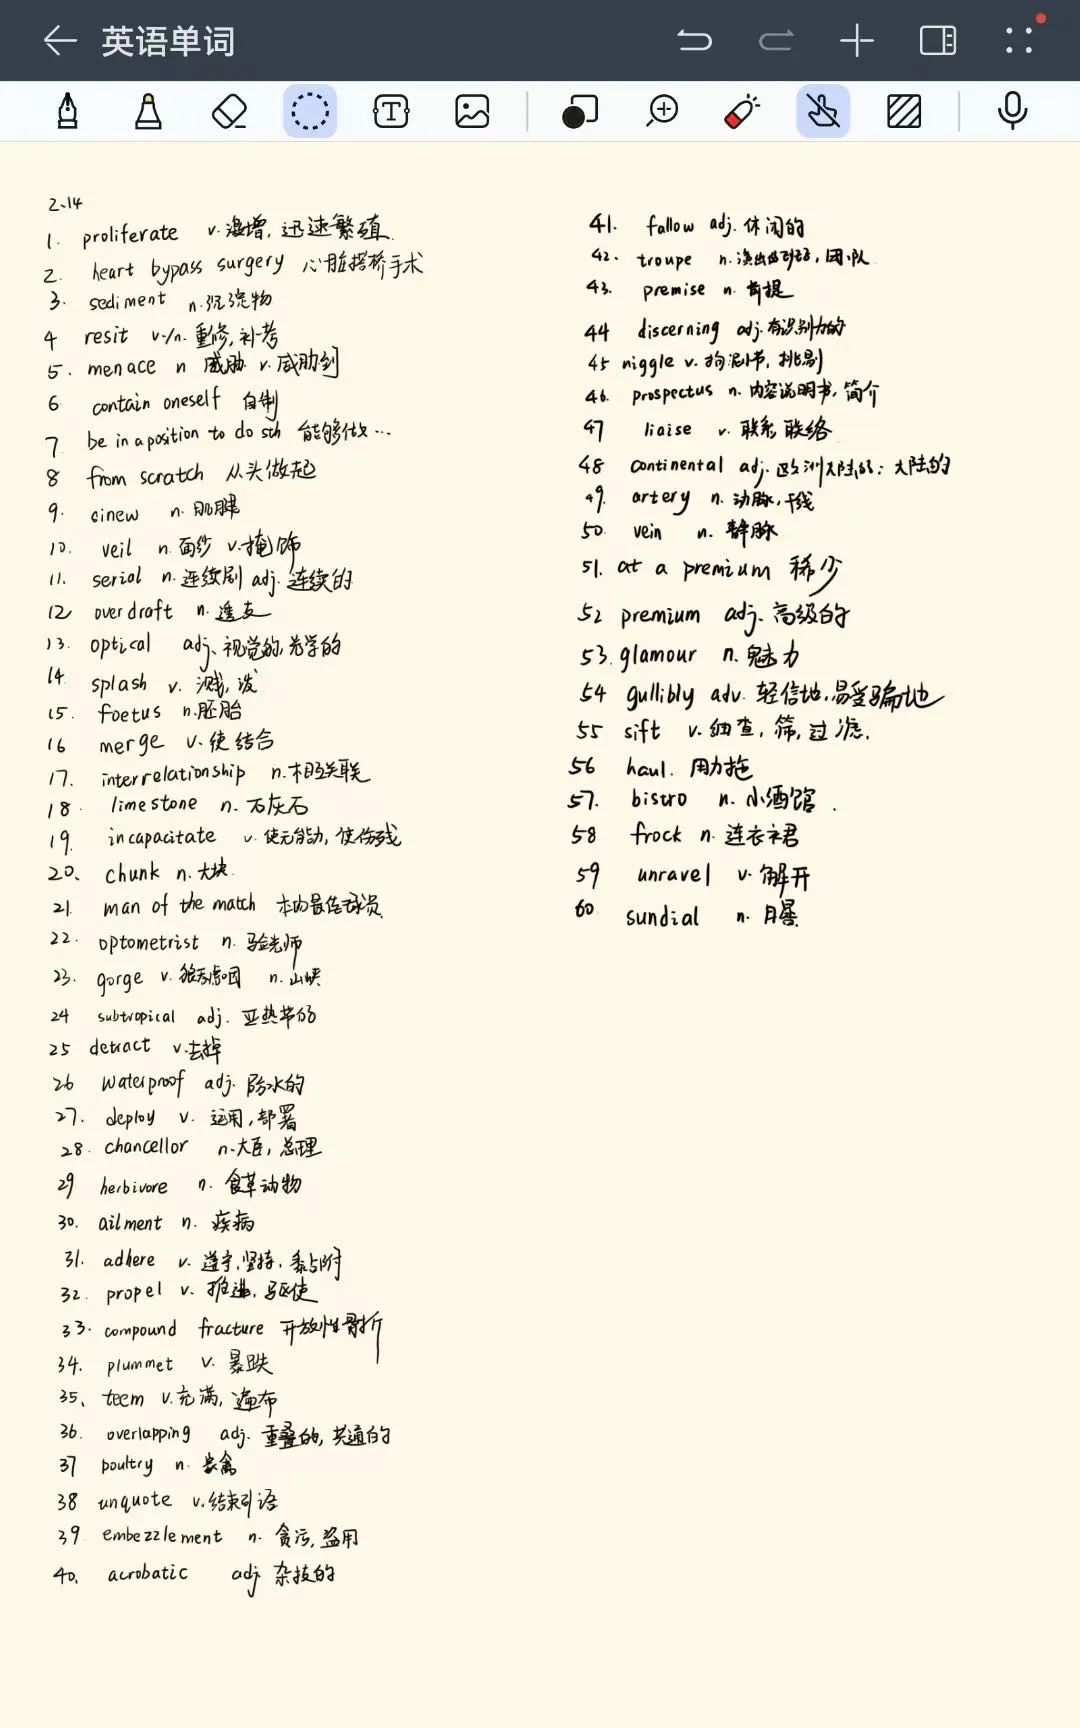 英语单词
2.14
1. proliferate v. 激增, 迅速繁殖
2. heart bypass surgery 心脏搭桥手术
3. sediment n. 沉淀物
4 resit v./n. 重修, 补考
5. menace n 威胁 v. 威胁到
6 contain oneself 自制
7 be in a position to do sth 能够做…
8 from scratch 从头做起
9. sinew n. 肌腱
10. veil n. 面纱 v. 掩饰
11. serial n. 连续剧 adj. 连续的
12 overdraft n. 透支
13. optical adj. 视觉的, 光学的
14 splash v. 溅, 泼
15. foetus n. 胚胎
16 merge v. 使结合
17. interrelationship n. 相互关联
18. limestone n. 石灰石
19. incapacitate v. 使无能力, 使伤残
20. chunk n. 大块
21 man of the match 本场最佳球员
22. optometrist n. 验光师
23. gorge v. 狼吞虎咽 n. 山峡
24 subtropical adj. 亚热带的
25 detract v. 去掉
26 waterproof adj. 防水的
27. deploy v. 运用, 部署
28. chancellor n. 大臣, 总理
29 herbivore n. 食草动物
30. ailment n. 疾病
31. adhere v. 遵守, 坚持, 黏附
32. propel v. 推进, 驱使
33. compound fracture 开放性骨折
34. plummet v. 暴跌
35. teem v. 充满, 遍布
36. overlapping adj. 重叠的, 共通的
37 poultry n. 家禽
38 unquote v. 结束引语
39 embezzlement n. 贪污, 盗用
40. acrobatic adj 杂技的
41. fallow adj. 休闲的
42. troupe n. 演出的, 团队
43. premise n. 前提
44 discerning adj. 有识别力的
45 niggle v. 拘泥小节, 挑剔
46. prospectus n. 内容说明书, 简介
47 liaise v. 联系 联络
48 continental adj. 欧洲大陆的; 大陆的
49. artery n. 动脉, 干线
50. vein n. 静脉
51. at a premium 稀少
52 premium adj. 高级的
53. glamour n. 魅力
54 gullibly adv. 轻信地, 易受骗地
55 sift v. 细查, 筛, 过滤.
56 haul. 用力拖
57. bistro n. 小酒馆.
58 frock n. 连衣裙
59 unravel v. 解开
60 sundial n. 日晷